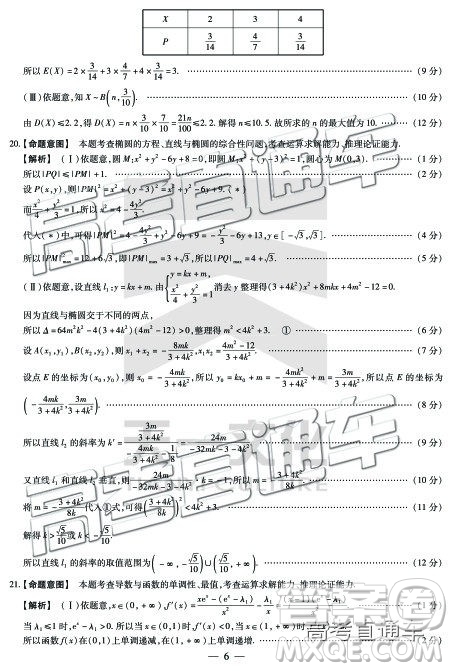 X 2 3 4
P 3/14 4/7 3/14
所以 E(X)=2×3/14+3×4/7+4×3/14=3. (9分)
(Ⅲ)依题意,知 X~B(n,3/10), (10分)
由 D(X)≤2.2,得 D(X)=n×3/10×7/10=21n/100≤2.2.解得 n≤10.5.故所求的 n 的最大值为 10. (12分)
20.【命题意图】 本题考查椭圆的方程、直线与椭圆的综合性问题,考查运算求解能力、推理论证能力.
【解析】 (Ⅰ)依题意,圆 M:x²+y²-6y+8=0,即圆 M:x²+(y-3)²=1,圆心为 M(0,3). (1分)
所以|PQ|≤|PM|+1. (2分)
设 P(x,y),则|PM|²=x²+(y-3)²=x²+y²-6y+9.(*)
而x²/4+y²/3=1,所以 x²=4-4y²/3
代入(*)中,可得|PM|²=4-4y²/3+y²-6y+9=-y²/3-6y+13,y∈[-√3,√3]. (4分)
所以|PM|²max=12+6√3,即|PM|max=3+√3,所以|PQ|max=4+√3. (5分)
(Ⅱ)依题意,设直线 l₁:y=kx+m.由{y=kx+m, x²/4+y²/3=1 消去 y 整理得(3+4k²)x²+8mkx+4m²-12=0.
因为直线与椭圆交于不同的两点,
所以 Δ=64m²k²-4(3+4k²)(4m²-12)>0,整理得 m²<4k²+3. ① (6分)
设 A(x₁,y₁),B(x₂,y₂),则 x₁+x₂=-8mk/(3+4k²),x₁x₂=(4m²-12)/(3+4k²)
设点 E 的坐标为(x₀,y₀),则 x₀=-4mk/(3+4k²),所以 y₀=kx₀+m=
所以点 E 的坐标为
(-4mk/(3+4k²),3m/(3+4k²)). (8分)
所以直线 l₂ 的斜率为 k'= (9分)
又直线 l₁ 和直线 l₂ 垂直,则 ·k=-1, (10分)
将 m=-(3+4k²)/8k 代入①式,可得((3+4k²)/8k)²<4k²+3. (11分)
解得 k>√5/10或 k<-√5/10.
所以直线 l₁ 的斜率的取值范围为(-∞,-√5/10)∪(√5/10,+∞). (12分)
21.【命题意图】 本题考查导数与函数的单调性、最值,考查运算求解能力、推理论证能力.
【解析】 (Ⅰ)依题意,x∈(0,+∞), (1分)
当 λ₁≤1 时,eˣ-λ₁>0. (2分)
所以函数 f(x)在(0,1)上单调递减,在(1,+∞)上单调递增.
· 6 ·
高考直通车